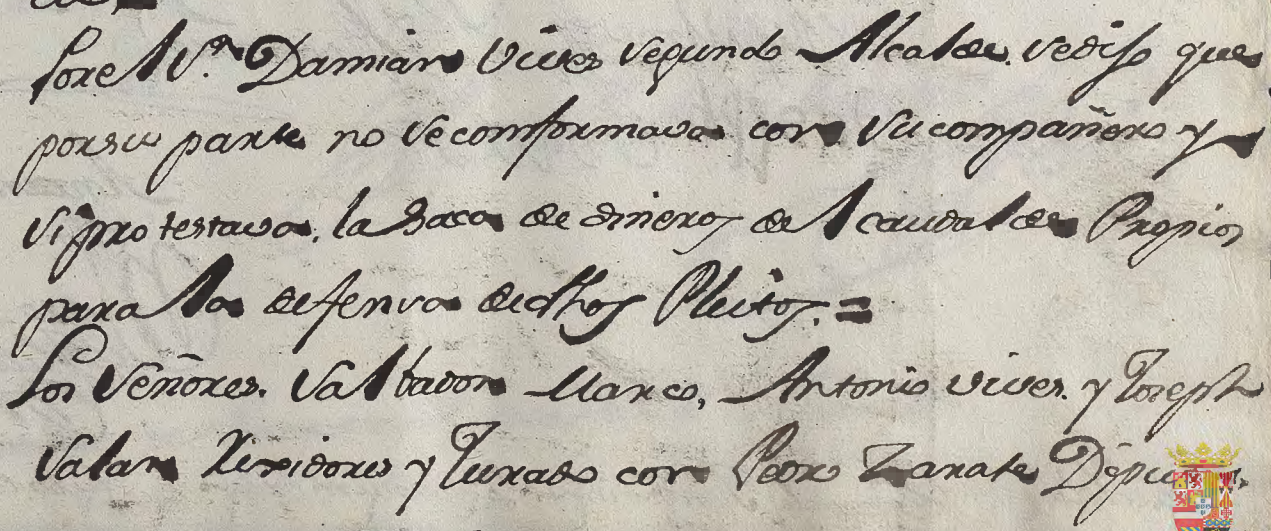 Por el Sr. Damian Vives Segundo Alcalde. se dijo que
por su parte no se comformava con su compañero y
si protestava, la saca de dineros del caudal de Propios
para la defensa de dhos Pleitos. =
Los Señores. Salbador Marco, Antonio vives. y Joseph
Salan Rexidores y Jurado con Pedro Zarate